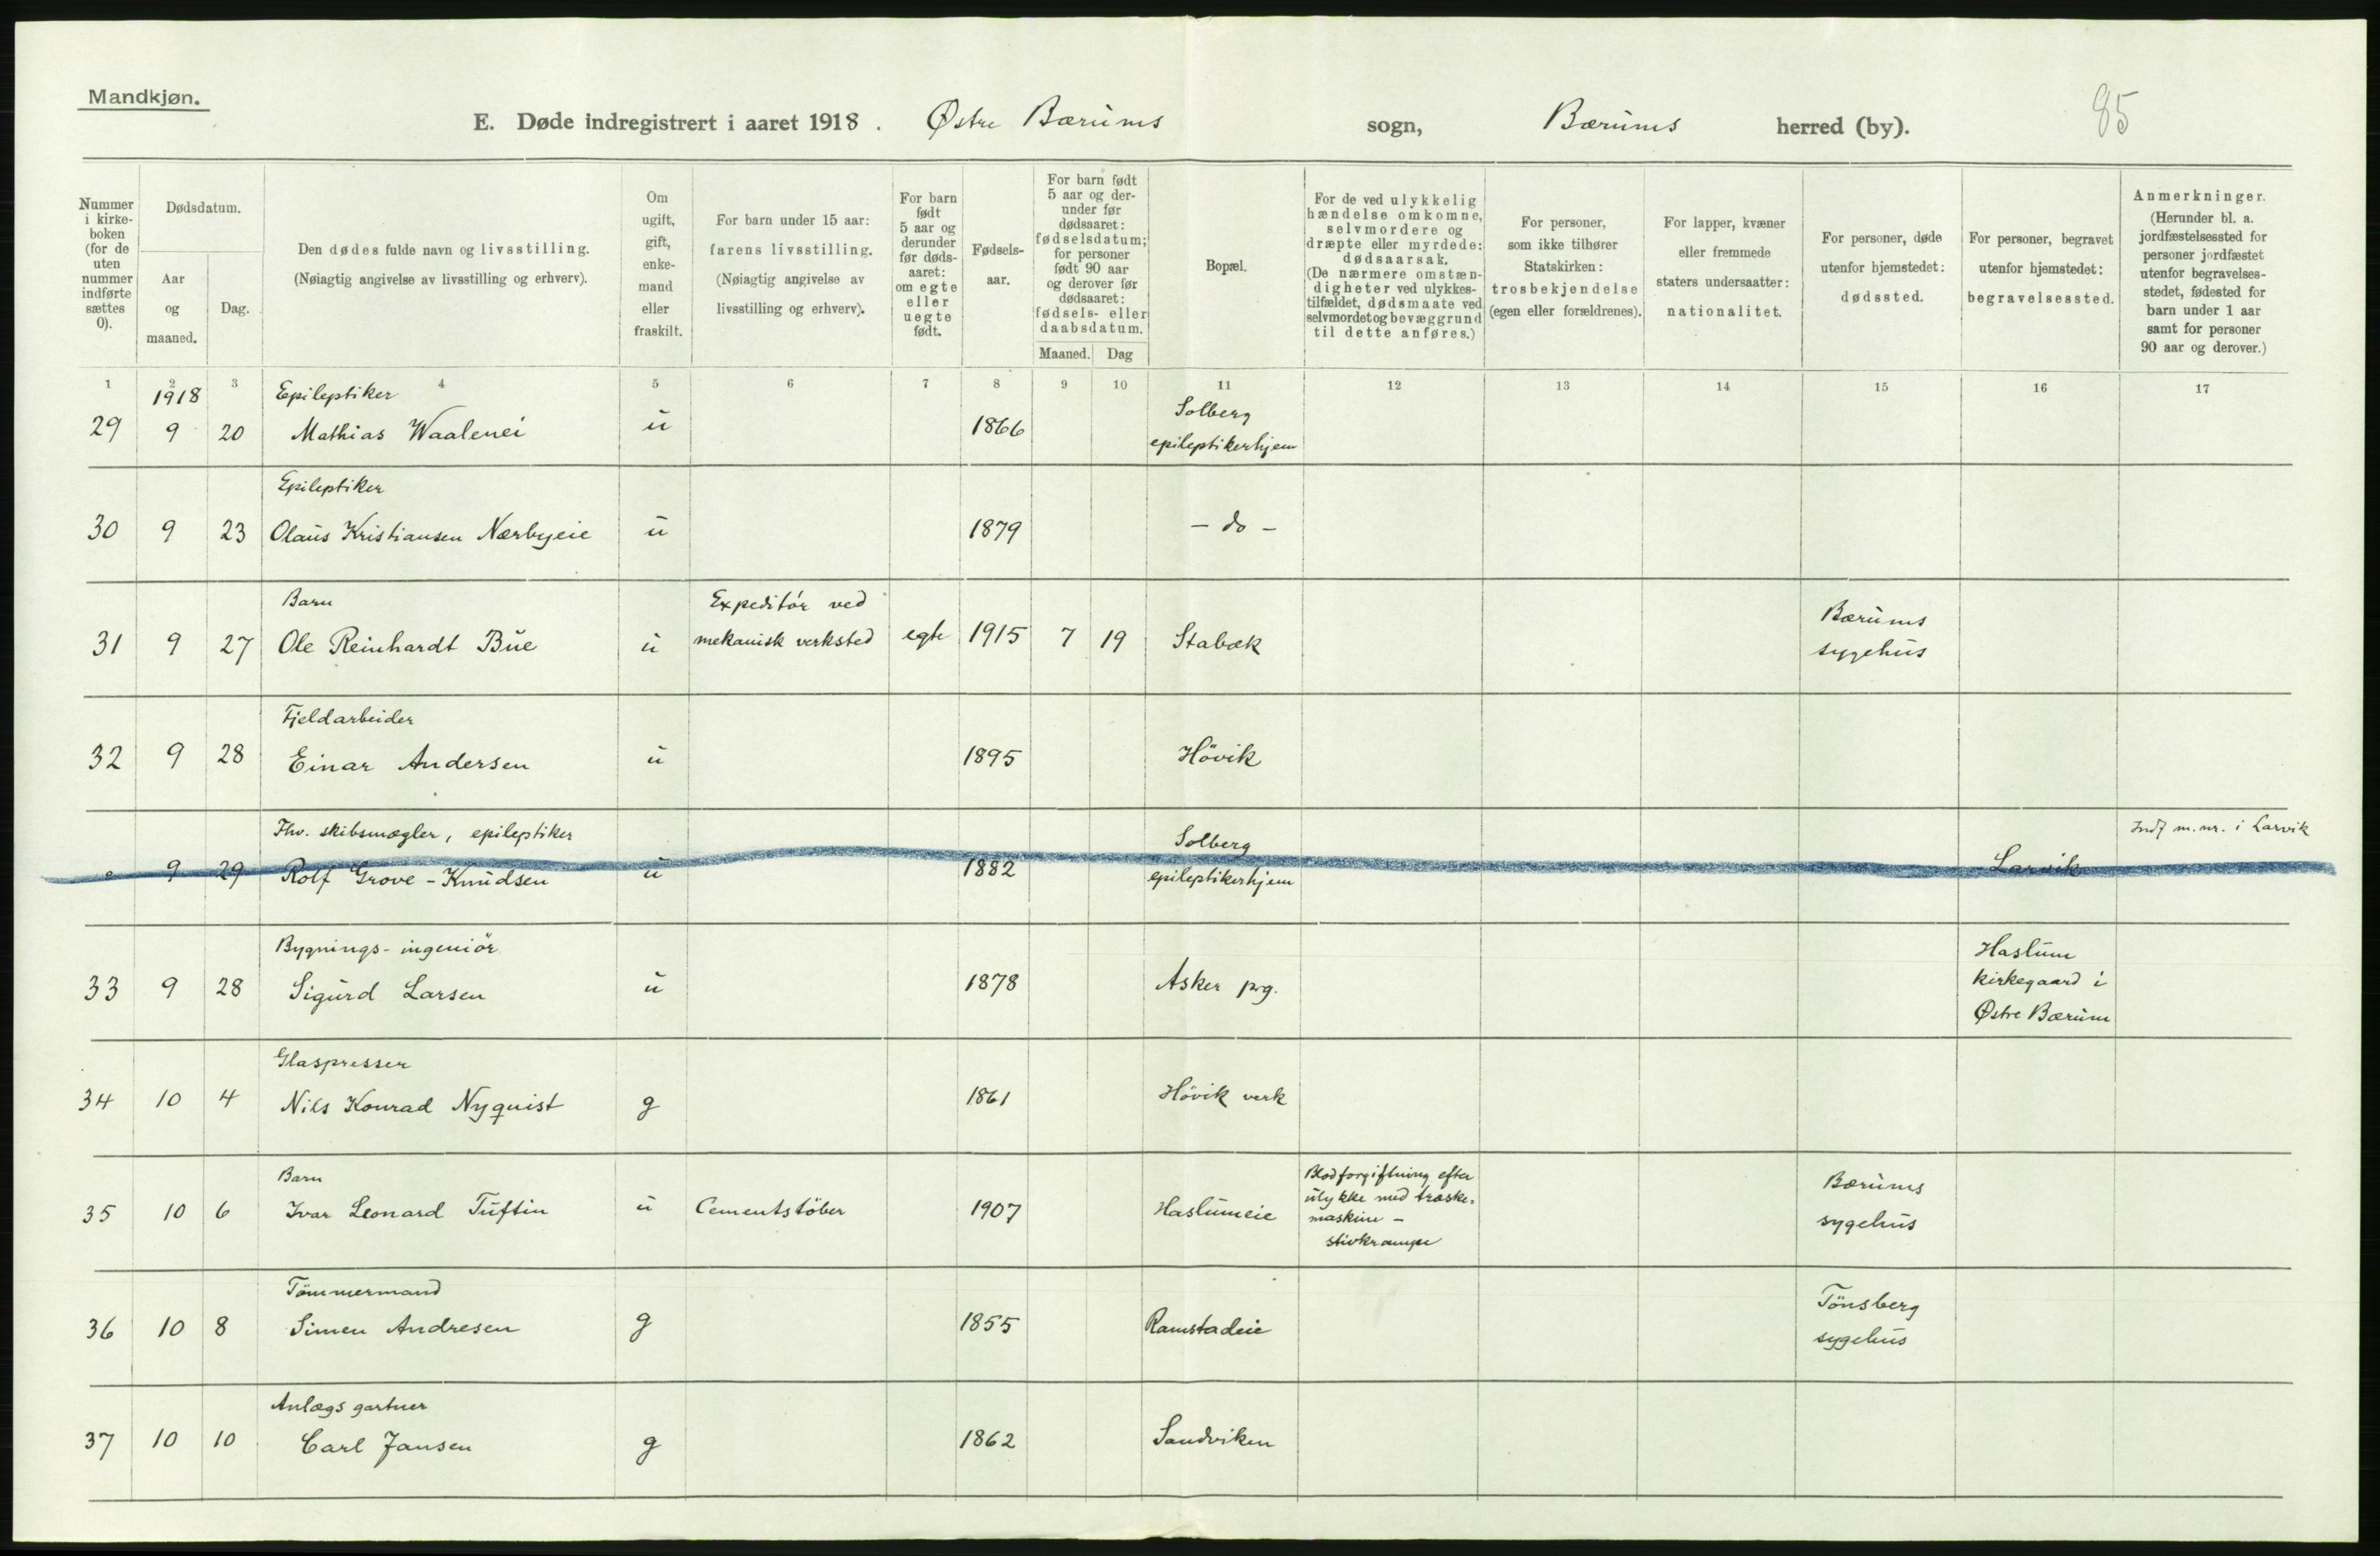 Mandkjøn.
E. Døde indregistrert i aaret 1918. Østre Bærums sogn, Bærums herred (by). 85
Nummer i kirke-boken (for de uten nummer indførte sættes 0).
Dødsdatum.
Aar og maaned.
Dag.
Den dødes fulde navn og livsstilling.
(Nøiagtig angivelse av livsstilling og erhverv).
Om ugift, gift, enke-mand eller fraskilt.
For barn under 15 aar: farens livsstilling.
(Nøiagtig angivelse av livsstilling og erhverv).
For barn født 5 aar og derunder før døds-aaret: om egte eller uegte født.
Fødsels-aar.
For barn født 5 aar og der-under før dødsaaret: fødselsdatum; for personer født 90 aar og derover før dødsaaret: fødsels- eller daabsdatum.
Maaned. Dag
Bopæl.
For de ved ulykkelig hændelse omkomne, selvmordere og dræpte eller myrdede: dødsaarsak.
(De nærmere omstæn-digheter ved ulykkes-tilfældet, dødsmaate ved selvmordet og bevæggrund til dette anføres.)
For personer, som ikke tilhører Statskirken: trosbekjendelse (egen eller forældrenes).
For lapper, kvæner eller fremmede staters undersaatter: nationalitet.
For personer, døde utenfor hjemstedet: dødssted.
For personer, begravet utenfor hjemstedet: begravelsessted.
Anmerkninger.
(Herunder bl. a. jordfæstelsessted for personer jordfæstet utenfor begravelses-stedet, fødested for barn under 1 aar samt for personer 90 aar og derover.)
1 2 3 4 5 6 7 8 9 10 11 12 13 14 15 16 17
1918 Epileptiker Solberg
29 9 20 Mathias Waalenei u 1866 epileptikerhjem
Epileptiker
30 9 23 Olaus Kristiansen Nærbyeie u 1879 - do -
Barn Expeditör ved Bærums
31 9 27 Ole Reinhardt Bue u mekanisk verksted egte 1915 7 19 Stabæk sygehus
Fjeldarbeider
32 9 28 Einar Andersen u 1895 Hövik
Fhv. skibsmægler, epileptiker Solberg Indf m. nr. i Larvik
0 9 29 Rolf Grove-Knudsen u 1882 epileptikerhjem Larvik
Bygnings-ingeniör Haslum
33 9 28 Sigurd Larsen u 1878 Asker prg. kirkegaard i
Østre Bærum
Glaspresser
34 10 4 Nils Konrad Nyquist g 1861 Hövik verk
Barn Blodforgiftning efter Bærums
35 10 6 Ivar Leonard Tuftin u Cementstöber 1907 Haslumeie ulykke med træske-
maskine - sygehus
stivkrampe
Tömmermand Tönsberg
36 10 8 Simen Andresen g 1855 Ramstadeie sygehus
Anlægsgartner
37 10 10 Carl Jansen g 1862 Sandviken